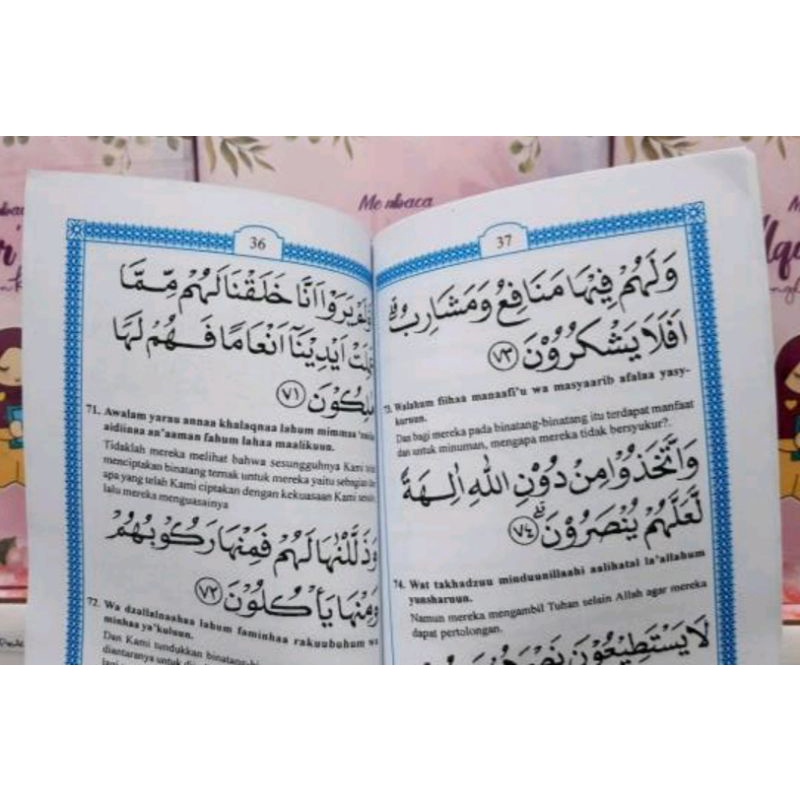 Membaca
36
اَوَلَمْ يَرَوْا اَنَّا خَلَقْنَا لَهُمْ مِّمَّا
عَمِلَتْ اَيْدِيْنَآ اَنْعَامًا فَهُمْ لَهَا
مٰلِكُوْنَ ﴿٧١﴾
71. Awalam yarau annaa khalaqnaa lahum mimmaa
aidiinaa an'aaman fahum lahaa maalikuun.
Tidaklah mereka melihat bahwa sesungguhnya Kami
menciptakan binatang ternak untuk mereka yaitu sebagian
apa yang telah Kami ciptakan dengan kekuasaan Kami
lalu mereka menguasainya
وَذَلَّلْنٰهَا لَهُمْ فَمِنْهَا رَكُوْبُهُمْ
وَمِنْهَا يَأْكُلُوْنَ ﴿٧٢﴾
72. Wa dzallalnaahaa lahum faminhaa rakuubuhum wa
minhaa ya'kuluun.
Dan Kami tundukkan binatang-
diantaranya untuk
37
وَلَهُمْ فِيْهَا مَنَافِعُ وَمَشَارِبُۗ
اَفَلَا يَشْكُرُوْنَ ﴿٧٣﴾
73. Walahum fiihaa manaafi'u wa masyaarib afalaa yasy-
kuruun.
Dan bagi mereka pada binatang-binatang itu terdapat manfaat
dan untuk minuman, mengapa mereka tidak bersyukur?.
وَاتَّخَذُوْا مِنْ دُوْنِ اللّٰهِ اٰلِهَةً
لَّعَلَّهُمْ يُنْصَرُوْنَۗ ﴿٧٤﴾
74. Wat takhadzuu minduunillaahi aalihatal la'allahum
yunsharuun.
Namun mereka mengambil Tuhan selain Allah agar mereka
dapat pertolongan.
لَا يَسْتَطِيْعُوْنَ نَصْرَهُمْ